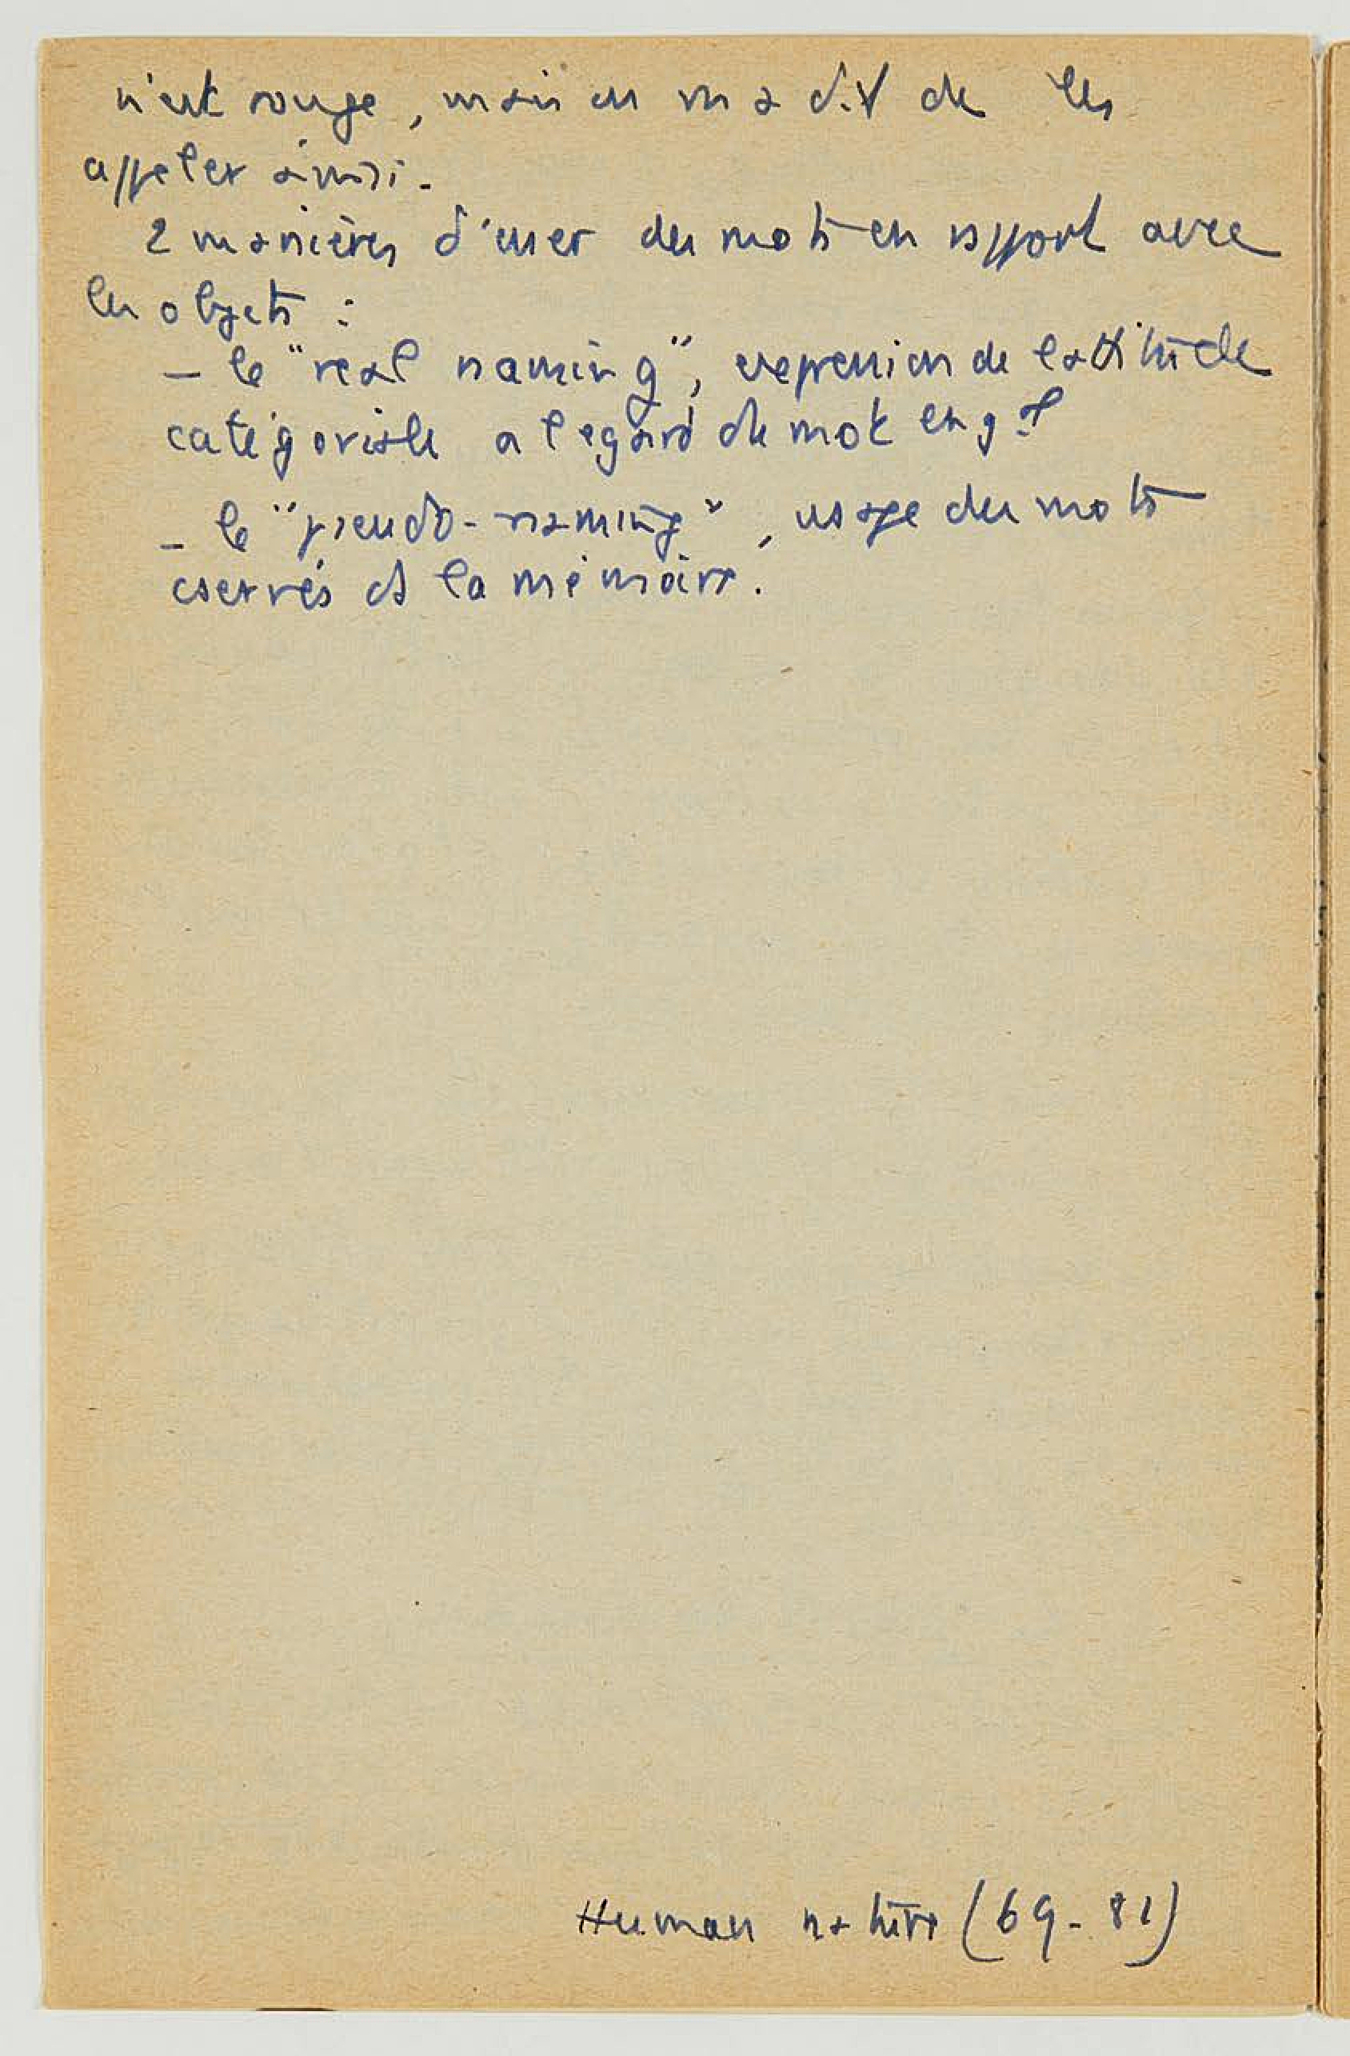 n'est rouge, mais on m'a dit de les
appeler ainsi.
2 manières d'user des mots en rapport avec
les objets :
– le "real naming", expression de l'attitude
catégoriale à l'égard du mot en gal
– le "pseudo-naming", usage des mots
cservés ds la mémoire.
Human nature (69-81)